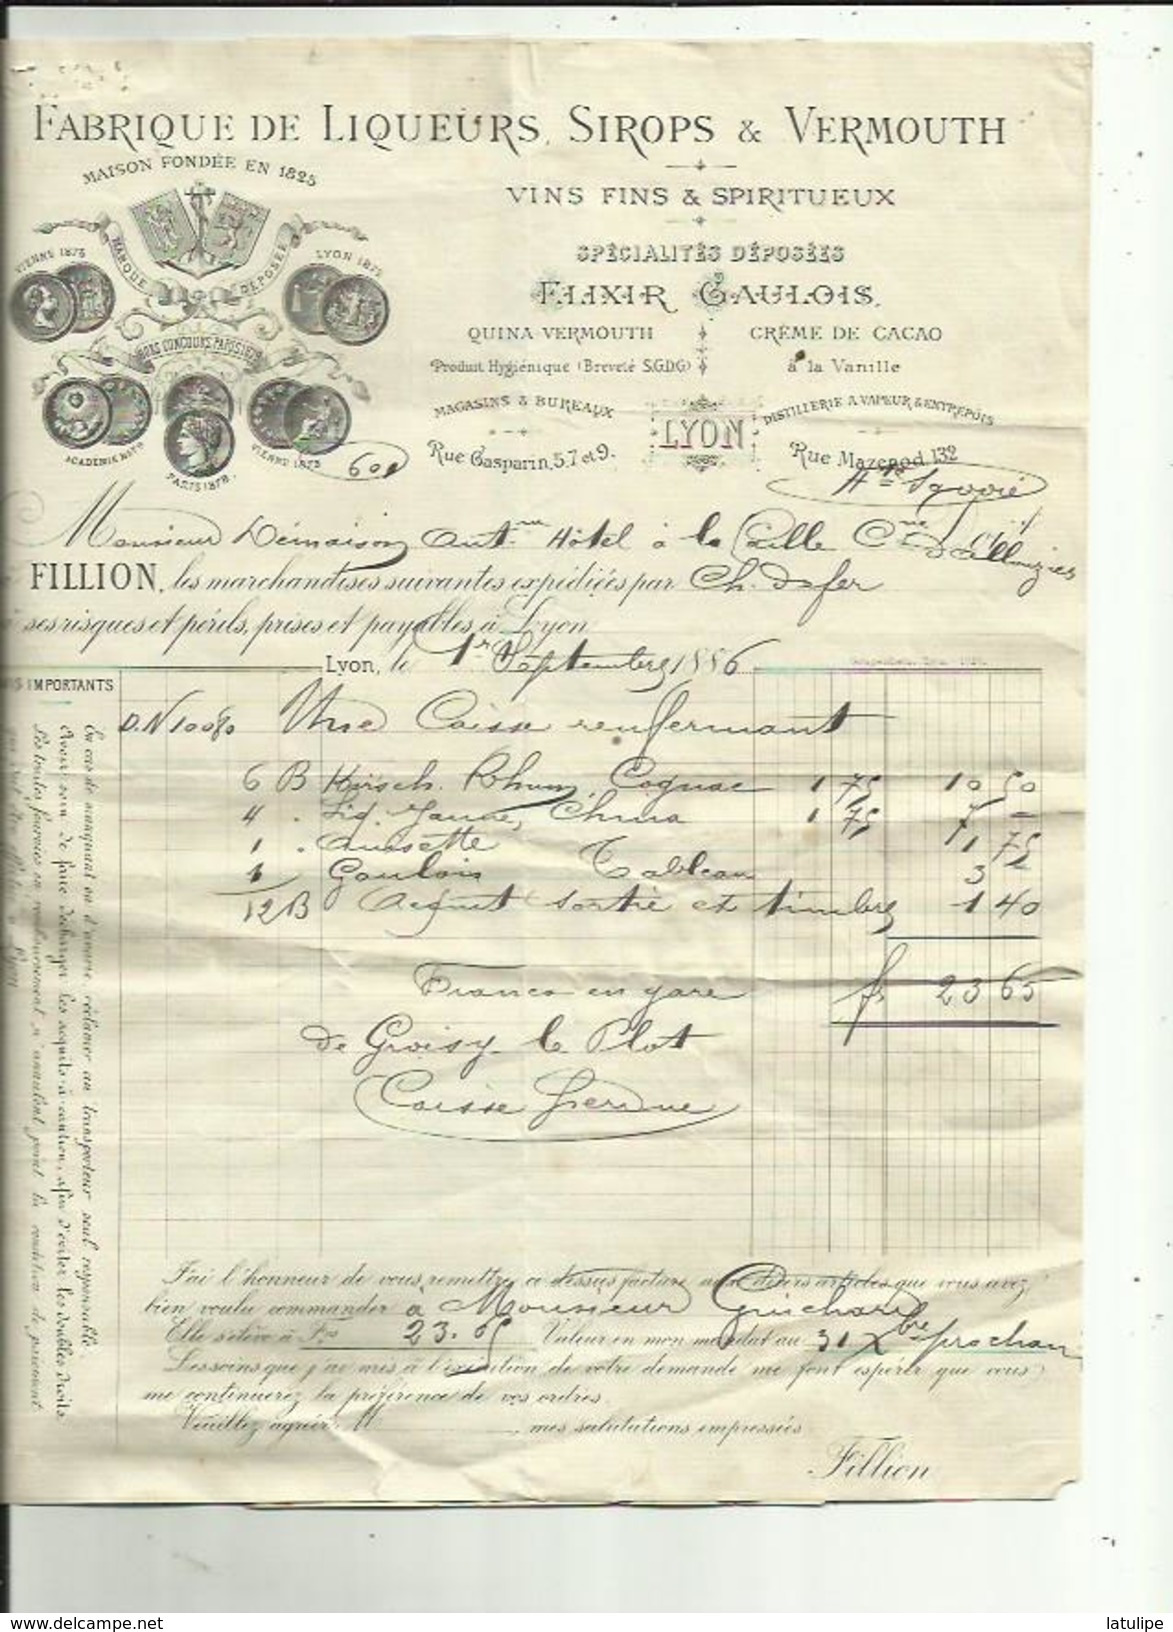 FABRIQUE DE LIQUEURS, SIROPS & VERMOUTH
MAISON FONDÉE EN 1825
VINS FINS & SPIRITUEUX
SPÉCIALITÉS DÉPOSÉES
ELIXIR GAULOIS,
QUINA VERMOUTH
Produit Hygiénique (Breveté S.G.D.G)
CRÈME DE CACAO
à la Vanille
MARQUE DÉPOSÉE
VIENNE 1873
LYON 1872
HORS CONCOURS PARIS 1878
ACADEMIE NATLE
PARIS 1878.
VIENNE 1873
MAGASINS & BUREAUX
Rue Gasparin, 5, 7 et 9.
LYON
DISTILLERIE A VAPEUR & ENTREPOTS
Rue Mazenod, 132
601
Hte Savoie
Monsieur Démaison Hôtel à la Caille Cne d'Allonzier
FILLION, les marchandises suivantes expédiées par Ch. de fer
ses risques et périls, prises et payables à Lyon
Lyon, le 1r Septembre 1886
IMPORTANTS
En cas de manquant ou d'avarie, réclamer au transporteur seul responsable
Avoir soin de faire décharger les acquits-à-caution, afin d'éviter les doubles droits
Les toutes fournies en remboursement n'annulent point la condition de paiement
D. N 10080 Une Caisse renfermant
6 B Kirsch. Rhum, Cognac 1 75 10 50
4 . Liq. Jaune, China 1 75 7 —
1 . Anisette 1 75
1 Gaulois Tableau 3
12 B Acquit sortie et timbre 1 40
Franco en gare fs 23 65
de Groisy le Plot
Caisse perdue
J'ai l'honneur de vous remettre ci dessus facture aux divers articles que vous avez
bien voulu commander à Monsieur Guichard
Elle s'élève à Frs 23.65 Valeur en mon mandat au 31 Xbre prochain
Les soins que j'ai mis à l'exécution de votre demande me font espérer que vous
me continuerez la préférence de vos ordres.
Veuillez agréer M , mes salutations empressées
Fillion
www.delcampe.net
latulipe